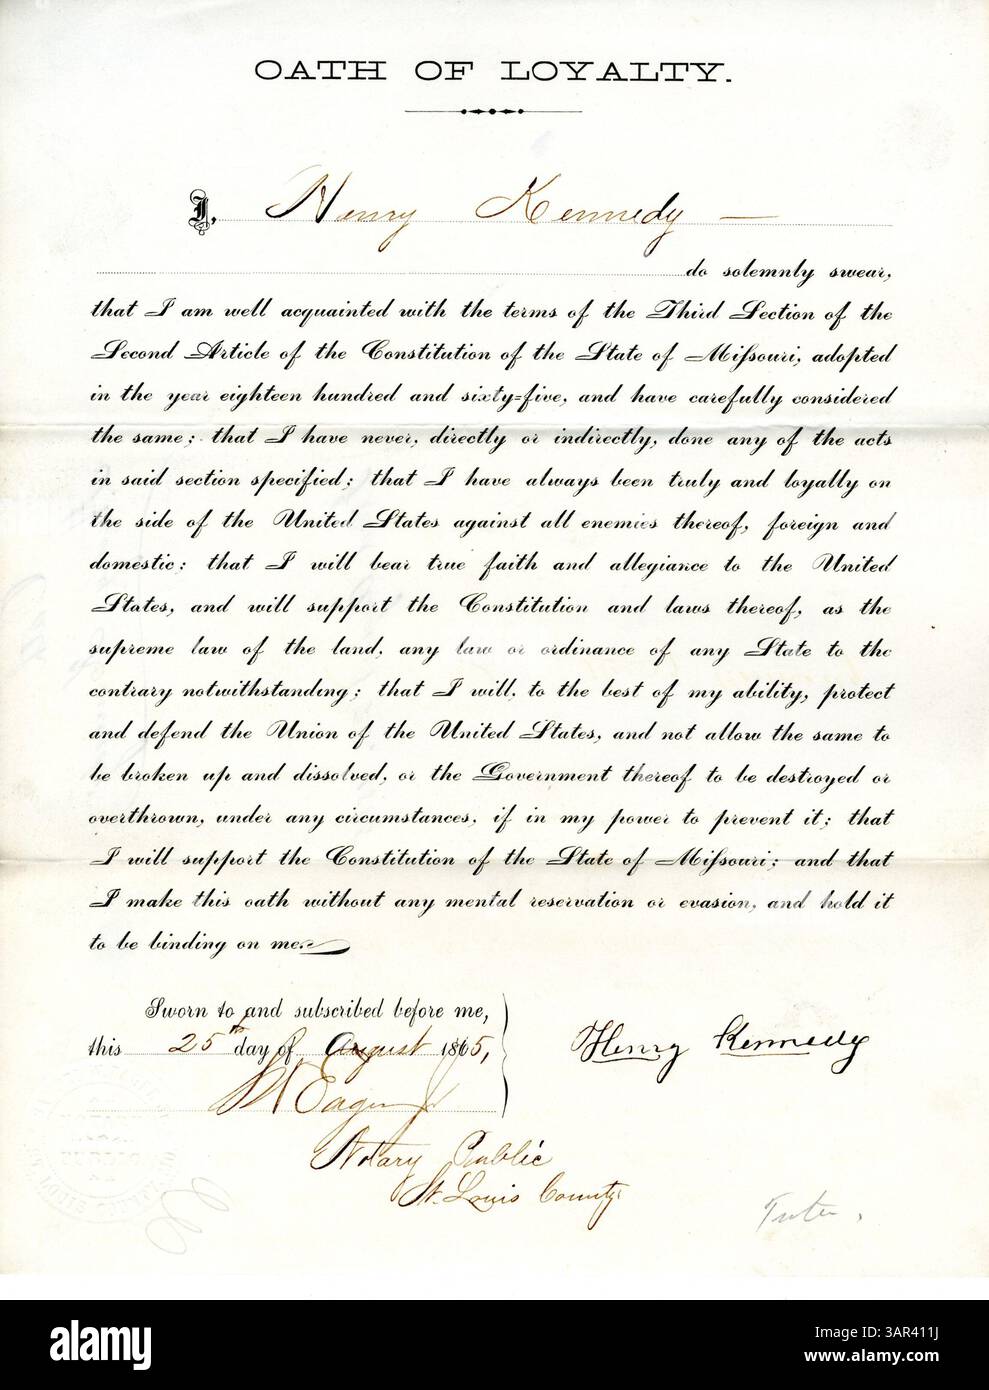 OATH OF LOYALTY.
I, Henry Kennedy —
do solemnly swear,
that I am well acquainted with the terms of the Third Section of the
Second Article of the Constitution of the State of Miſsouri, adopted
in the year eighteen hundred and sixty=five, and have carefully considered
the same; that I have never, directly or indirectly, done any of the acts
in said section specified; that I have always been truly and loyally on
the side of the United States against all enemies thereof, foreign and
domestic: that I will bear true faith and allegiance to the United
States, and will support the Constitution and laws thereof, as the
supreme law of the land, any law or ordinance of any State to the
contrary notwithstanding; that I will, to the best of my ability, protect
and defend the Union of the United States, and not allow the same to
be broken up and dissolved, or the Government thereof to be destroyed or
overthrown, under any circumstances, if in my power to prevent it; that
I will support the Constitution of the State of Miſsouri; and that
I make this oath without any mental reservation or evasion, and hold it
to be binding on me.
Sworn to and subscribed before me,
this 25th day of August 1865,
Henry Kennedy
Notary Public
St. Louis County
alamy
Image ID: 3AR411J
www.alamy.com